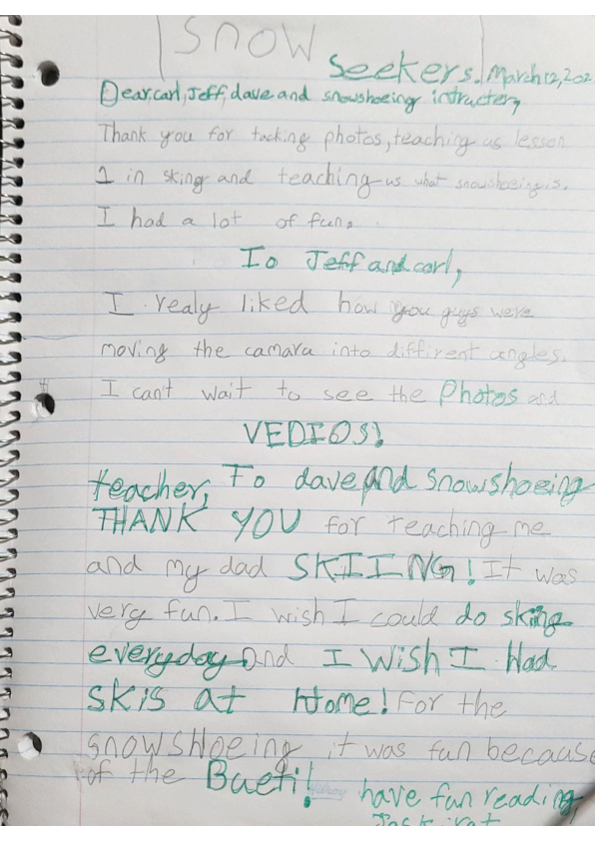 Snow
Seekers. March 12, 202
Dear, carl, Jeff, dave and snowshoeing intructer,
Thank you for tacking photos, teaching us lesson
1 in sking and teaching us what snowshoeing is.
I had a lot of fun.
To Jeff and carl,
I realy liked how you guys were
moving the camara into diffirent angles.
I can't wait to see the Photos and
VEDIOS!
teacher, To dave and snowshoeing
THANK YOU for teaching me
and my dad SKIING! It was
very fun. I wish I could do sking
everyday and I wish I Had
skis at Home! For the
snowsHoeing it was fun because
of the Baeti!
have fun reading,
Jaskirat